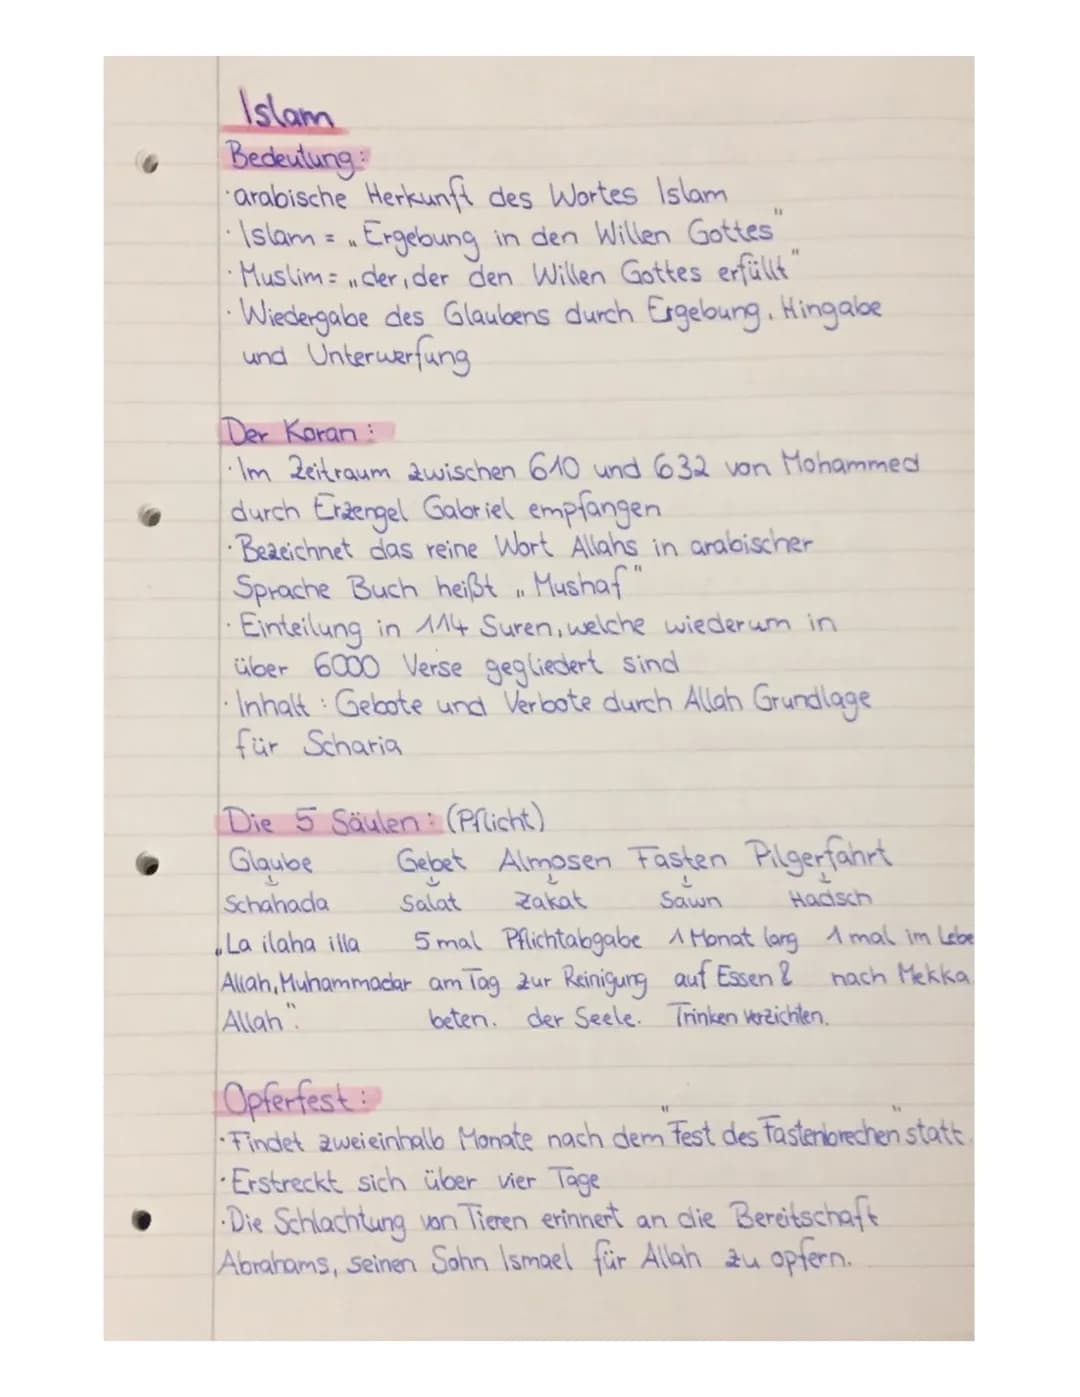 Islam
Bedeutung:
·arabische Herkunft des Wortes Islam
·Islam = „Ergebung in den Willen Gottes"
·Muslim = „der, der den Willen Gottes erfüllt"
·Wiedergabe des Glaubens durch Ergebung, Hingabe
und Unterwerfung
Der Koran:
·Im Zeitraum zwischen 610 und 632 von Mohammed
durch Erzengel Gabriel empfangen
·Bezeichnet das reine Wort Allahs in arabischer
Sprache Buch heißt „Mushaf"
·Einteilung in 114 Suren, welche wiederum in
über 6000 Verse gegliedert sind
·Inhalt: Gebote und Verbote durch Allah Grundlage
für Scharia
Die 5 Säulen: (Pflicht)
Glaube Gebet Almosen Fasten Pilgerfahrt
↓ ↓ ↓ ↓ ↓
Schahada Salat Zakat Sawn Hadsch
„La ilaha illa 5 mal Pflichtabgabe 1 Monat lang 1 mal im Lebe
Allah, Muhammadar am Tag zur Reinigung auf Essen & nach Mekka
Allah". beten. der Seele. Trinken verzichten.
Opferfest:
·Findet zweieinhalb Monate nach dem "Fest des Fastenbrechen" statt.
·Erstreckt sich über vier Tage
·Die Schlachtung von Tieren erinnert an die Bereitschaft
Abrahams, seinen Sohn Ismael für Allah zu opfern.